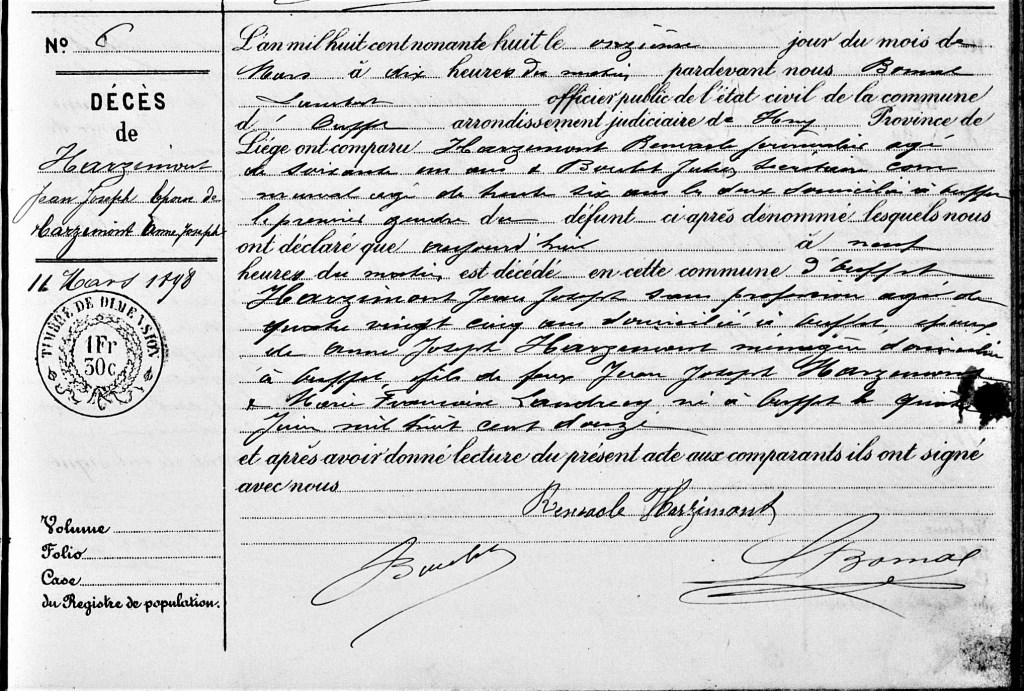 Nº 6
DÉCÈS
de
Harzimont
Jean Joseph Epoux de
Harzimont Anne Joseph
11 Mars 1898
TIMBRE DE DIMENSION
1Fr
30c
Volume
Folio
Case
du Registre de population.
L'an mil huit cent nonante huit le onzième jour du mois de
Mars à dix heures du matin pardevant nous Bomal
Lambert officier public de l'état civil de la commune
d' Ouffet arrondissement judiciaire de Huy Province de
Liége ont comparu Harzemont Remacle journalier agé
de soixante un ans & Boulet Jules, secrétaire com
munal agé de trente six ans les deux domiciliés à Ouffet
le premier gendre du défunt ci après dénommé lesquels nous
ont déclaré que aujourd'hui à neuf
heures du matin est décédé en cette commune d'Ouffet
Harzimont Jean Joseph sans profession agé de
quatre vingt cinq ans domicilié à Ouffet, époux
de Anne Joseph Harzemont ménagère domiciliée
à Ouffet, fils de feux Jean Joseph Harzemont
& Marie Françoise né à Ouffet le
Juin mil huit cent douze
et après avoir donné lecture du présent acte aux comparants ils ont signé
avec nous
Remacle Harzimont
Boulet
L Bomal